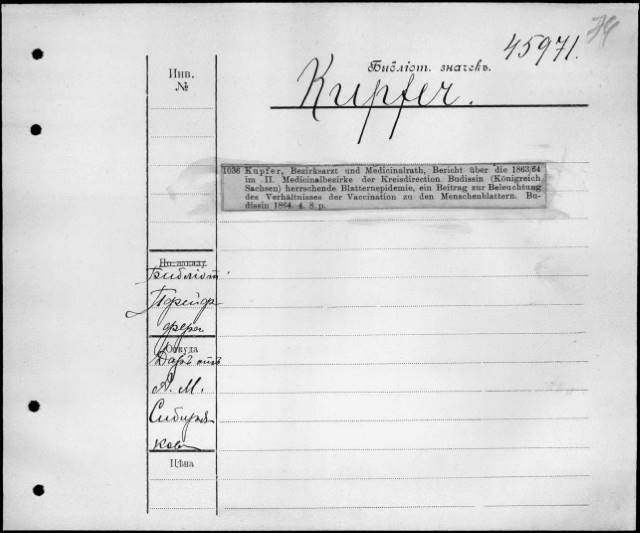 79
45971.
Библіот. значекъ.
Kupfer.
Инв.
№
1036 Kupfer, Bezirksarzt und Medicinalrath, Bericht über die 1863/64
im II. Medicinalbezirke der Kreisdirection Budissin (Königreich
Sachsen) herrschende Blatternepidemie, ein Beitrag zur Beleuchtung
des Verhältnisses der Vaccination zu den Menschenblattern. Bu-
dissin 1864. 4. 8. p.
По заказу
Библіот.
Пфейф-
фера
Откуда
Даръ отъ
А. М.
Сибиря-
кова
Цѣна